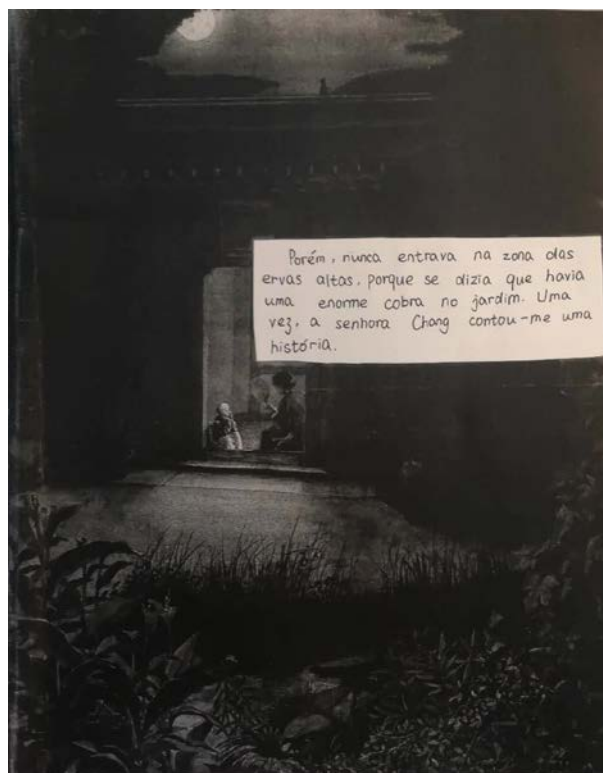 Porém, nunca entrava na zona das
ervas altas, porque se dizia que havia
uma enorme cobra no jardim. Uma
vez, a senhora Chang contou-me uma
história.